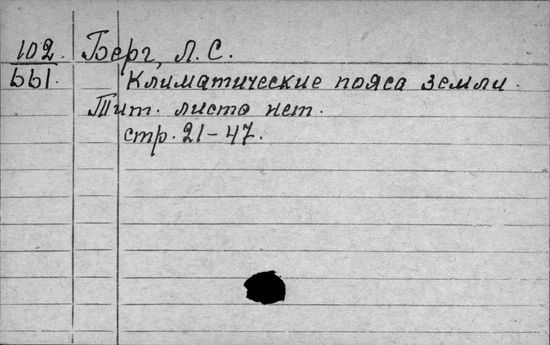 102. Берг, Л. С.
661. Климатические пояса земли.
Тит. листа нет.
стр. 21-47.